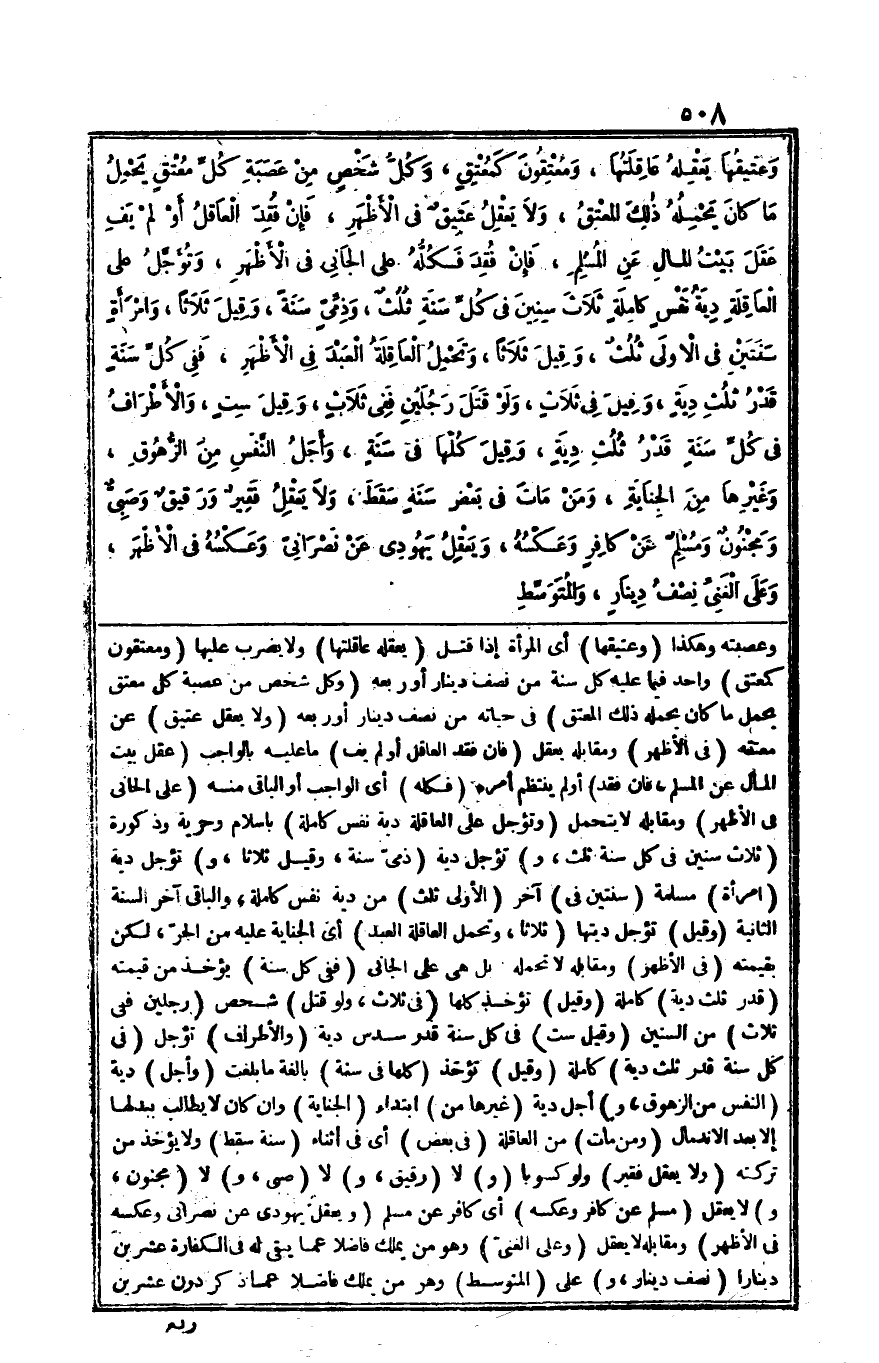 ٥٠٨
وَعَتِيقُهَا يَعْقِلُهُ عَاقِلَتُهَا ، وَمُعْتِقُونَ كَمُعْتِقٍ ، وَكُلُّ شَخْصٍ مِنْ عَصَبَةِ كُلِّ مُعْتِقٍ يَحْمِلُ
مَا كَانَ يَحْمِلُهُ ذٰلِكَ المُعْتِقُ ، وَلاَ يَعْقِلُ عَتِيقٌ فى الْأَظْهَرِ ، فَإِنْ فُقِدَ الْعَاقِلُ أَوْ لَمْ يَفِ
عَقَلَ بَيْتُ المَالِ عَنِ المُسْلِمِ ، فَإِنْ فُقِدَ فَكُلُّهُ عَلَى الجَانِى فى الْأَظْهَرِ ، وَتُؤَجَّلُ عَلَى
الْعَاقِلَةِ دِيَةُ نَفْسٍ كَامِلَةٍ ثَلَاثَ سِنِينَ فى كُلِّ سَنَةٍ ثُلُثٌ ، وَذِمِّىٍّ سَنَةً ، وَقِيلَ ثَلَاثًا ، وَامْرَأَةٍ
سَنَتَيْنِ فى الأولَى ثُلُثٌ ، وَقِيلَ ثَلَاثًا ، وَتَحْمِلُ الْعَاقِلَةُ الْعَبْدَ فِى الْأَظْهَرِ ، فَفِى كُلِّ سَنَةٍ
قَدْرُ ثُلُثِ دِيَةٍ ، وَقِيلَ فِى ثَلَاثٍ ، وَلَوْ قَتَلَ رَجُلَيْنِ فَفِى ثَلَاثٍ ، وَقِيلَ سِتٍ ، وَالْأَطْرَافُ
فى كُلِّ سَنَةٍ قَدْرُ ثُلُثِ دِيَةٍ ، وَقِيلَ كُلُّهَا فى سَنَةٍ ، وَأَجَلُ النَّفْسِ مِنَ الزُّهُوقِ ،
وَغَيْرِهَا مِنَ الجِنَايَةِ ، وَمَنْ مَاتَ فى بَعْضِ سَنَةٍ سَقَطَ ، وَلاَ يَعْقِلُ فَقِيرٌ وَرَقيقٌ وَصَبِىٌّ
وَمَجْنُونٌ وَمُسْلِمٌ عَنْ كَافِرٍ وَعَكْسُهُ ، وَيَعْقِلُ يَهُودِى عَنْ نَصْرَانِىّ وَعَكْسُهُ فى الْأَظْهَرِ ،
وَعَلَى الْغَنِىِّ نِصْفُ دِينَارٍ ، وَالمُتَوَسِّطِ
وعصبته وهكذا ( وعتيقها ) أى المرأة إذا قتل ( يعقله عاقلتها ) ولا يضرب عليها ( ومعتقون
كمعتق ) واحد فيما عليه كل سنة من نصف دينار أو ربعه ( وكل شخص من عصبة كل معتق
يحمل ما كان يحمله ذلك المعتق ) فى حياته من نصف دينار أو ربعه ( ولا يعقل عتيق ) عن
معتقه ( فى الأظهر ) ومقابله يعقل ( فان فقد العاقل أو لم يف ) ماعليه بالواجب ( عقل بيت
المال عن المسلم ، فان فقد ) أو لم ينتظم أمره ( فكله ) أى الواجب أو الباقى منه ( على الجانى
فى الأظهر ) ومقابله لا يتحمل ( وتؤجل على العاقلة دية نفس كاملة ) باسلام وحرية وذكورة
( ثلاث سنين فى كل سنة ثلث ، و ) تؤجل دية ( ذمىّ سنة ، وقيل ثلاثا ، و ) تؤجل دية
( امرأة ) مسلمة ( سنتين فى ) آخر ( الأولى ثلث ) من دية نفس كاملة ، والباقى آخر السنة
الثانية ( وقيل ) تؤجل ديتها ( ثلاثا ، وتحمل العاقلة العبد ) أى الجناية عليه من الحرّ ، لكن
بقيمته ( فى الأظهر ) ومقابله لا تحمله بل هى على الجانى ( ففى كل سنة ) يؤخذ من قيمته
( قدر ثلث دية ) كاملة ( وقيل ) تؤخذ كلها ( فى ثلاث ، ولو قتل ) شخص ( رجلين ففى
ثلاث ) من السنين ( وقيل ست ) فى كل سنة قدر سدس دية ( والأطراف ) تؤجل ( فى
كل سنة قدر ثلث دية ) كاملة ( وقيل ) تؤخذ ( كلها فى سنة ) بالغة مابلغت ( وأجل ) دية
( النفس من الزهوق ، و ) أجل دية ( غيرها من ) ابتداء ( الجناية ) وان كان لا يطالب ببدلها
إلا بعد الاندمال ( ومن مات ) من العاقلة ( فى بعض ) أى فى أثناء ( سنة سقط ) ولا يؤخذ من
تركته ( ولا يعقل فقير ) ولو كسوبا ( و ) لا ( رقيق ، و ) لا ( صبى ، و ) لا ( مجنون ،
و ) لا يعقل ( مسلم عن كافر وعكسه ) أى كافر عن مسلم ( ويعقل يهودى عن نصرانى وعكسه
فى الأظهر ) ومقابله لا يعقل ( وعلى الغنىّ ) وهو من يملك فاضلا عما يبقى له فى الكفارة عشرين
دينارا ( نصف دينار ، و ) على ( المتوسط ) وهو من يملك فاضلا عما ذكر دون عشرين
ربع